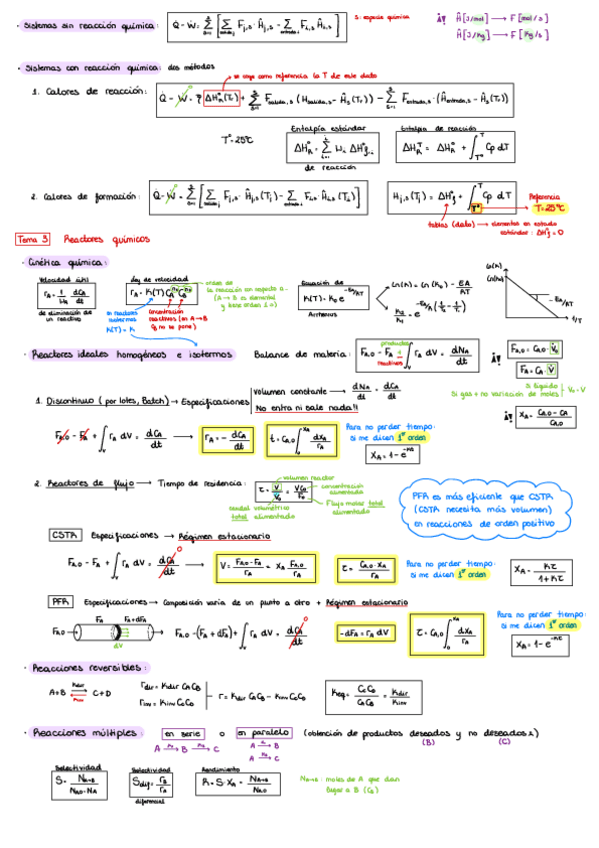 · Sistemas sin reacción química: Q̇ - Ẇ = Σ [Σ F_j,s · Ĥ_j,s - Σ F_i,s Ĥ_i,s] S: especie química
Ĥ [J/mol] → F [mol/s]
Ĥ [J/kg] → F [kg/s]
· Sistemas con reacción química: dos métodos
se coge como referencia la T de este dato
1. Calores de reacción: Q̇ - Ẇ = ξ ΔH°R(Tr) + Σ F salida,s (H salida,s - Hs(Tr)) - Σ F entrada,s · (H entrada,s - Hs(Tr))
T°= 25°C
Entalpía estándar
de reacción
Entalpía de reacción
ΔH_R^T = ΔH°_R + ∫ Cp dT
2. Calores de formación: Q̇ - Ẇ = Σ [Σ F_j,s Ĥ_j,s(Tj) - Σ F_i,s Ĥ_i,s(Ti)]
H_j,s(Tj) = ΔH°f + ∫ Cp dT
Referencia
T=25°C
tablas (dato) → elementos en estado
estándar: ΔH°f = 0
Tema 3 Reactores químicos
· Cinética química:
Velocidad útil
de eliminación de
un reactivo
Ley de velocidad
orden de
la reacción con respecto a
(A → B es elemental
y tiene orden 1)
en reactores
isotermos
K(T) = K
concentración
reactivos (en A→B
CB no se pone)
Ecuación de
K(T) = K₀ e^(-EA/RT)
Arrhenius
Ln(K) = Ln(K₀) - EA/RT
Ln(K)
Ln(K₀)
-EA/RT
1/T
· Reactores ideales homogéneos e isotermos Balance de materia: F_A,0 - F_A ± ∫ r_A dV = dN_A/dt
productos
reactivos
F_A,0 = C_A,0 · V̇₀
F_A = C_A · V̇
si líquido
Si gas + no variación de moles
V̇₀ = V̇
1. Discontinuo (por lotes, Batch) → Especificaciones
Volumen constante → dN_A/dt = dC_A/dt
No entra ni sale nada!!
X_A = (C_A,0 - C_A)/C_A,0
F_A,0 - F_A + ∫ r_A dV = dC_A/dt → r_A = - dC_A/dt
t = C_A,0 ∫ dX_A/r_A
Para no perder tiempo:
si me dicen 1er orden
X_A = 1 - e^(-Kt)
2. Reactores de flujo → Tiempo de residencia: τ = V/V̇₀ = V C₀/F₀
volumen reactor
concentración
alimentada
Flujo molar total
alimentado
caudal volumétrico
total alimentado
PFR es más eficiente que CSTR
(CSTR necesita más volumen)
en reacciones de orden positivo
CSTR Especificaciones → Régimen estacionario
F_A,0 - F_A + ∫ r_A dV = dC_A/dt 0 → V = (F_A,0 - F_A)/r_A = X_A F_A,0/r_A
τ = C_A,0 · X_A/r_A
Para no perder tiempo:
si me dicen 1er orden
X_A = Kτ/(1+Kτ)
PFR Especificaciones → Composición varía de un punto a otro + Régimen estacionario
F_A F_A+dF_A
F_A,0 dV F_A,0 - (F_A + dF_A) + ∫ r_A dV = dC_A/dt 0 → -dF_A = r_A dV
τ = C_A,0 ∫ dX_A/r_A
Para no perder tiempo:
si me dicen 1er orden
X_A = 1 - e^(-Kτ)
· Reacciones reversibles:
A+B ⇌ C+D
Kdir
Kinv
r_dir = Kdir C_A C_B
r_inv = Kinv C_C C_D
r = Kdir C_A C_B - Kinv C_C C_D
Keq = C_C C_D/C_A C_B = Kdir/Kinv
· Reacciones múltiples: en serie o en paralelo (obtención de productos deseados y no deseados)
(B) (C)
A → B → C
A → B
A → C
Selectividad
S = N_A→B/(N_A,0 - N_A)
Selectividad
S_dif = r_B/r_A
diferencial
Rendimiento
R = S · X_A = N_A→B/N_A,0
N_A→B: moles de A que dan
lugar a B